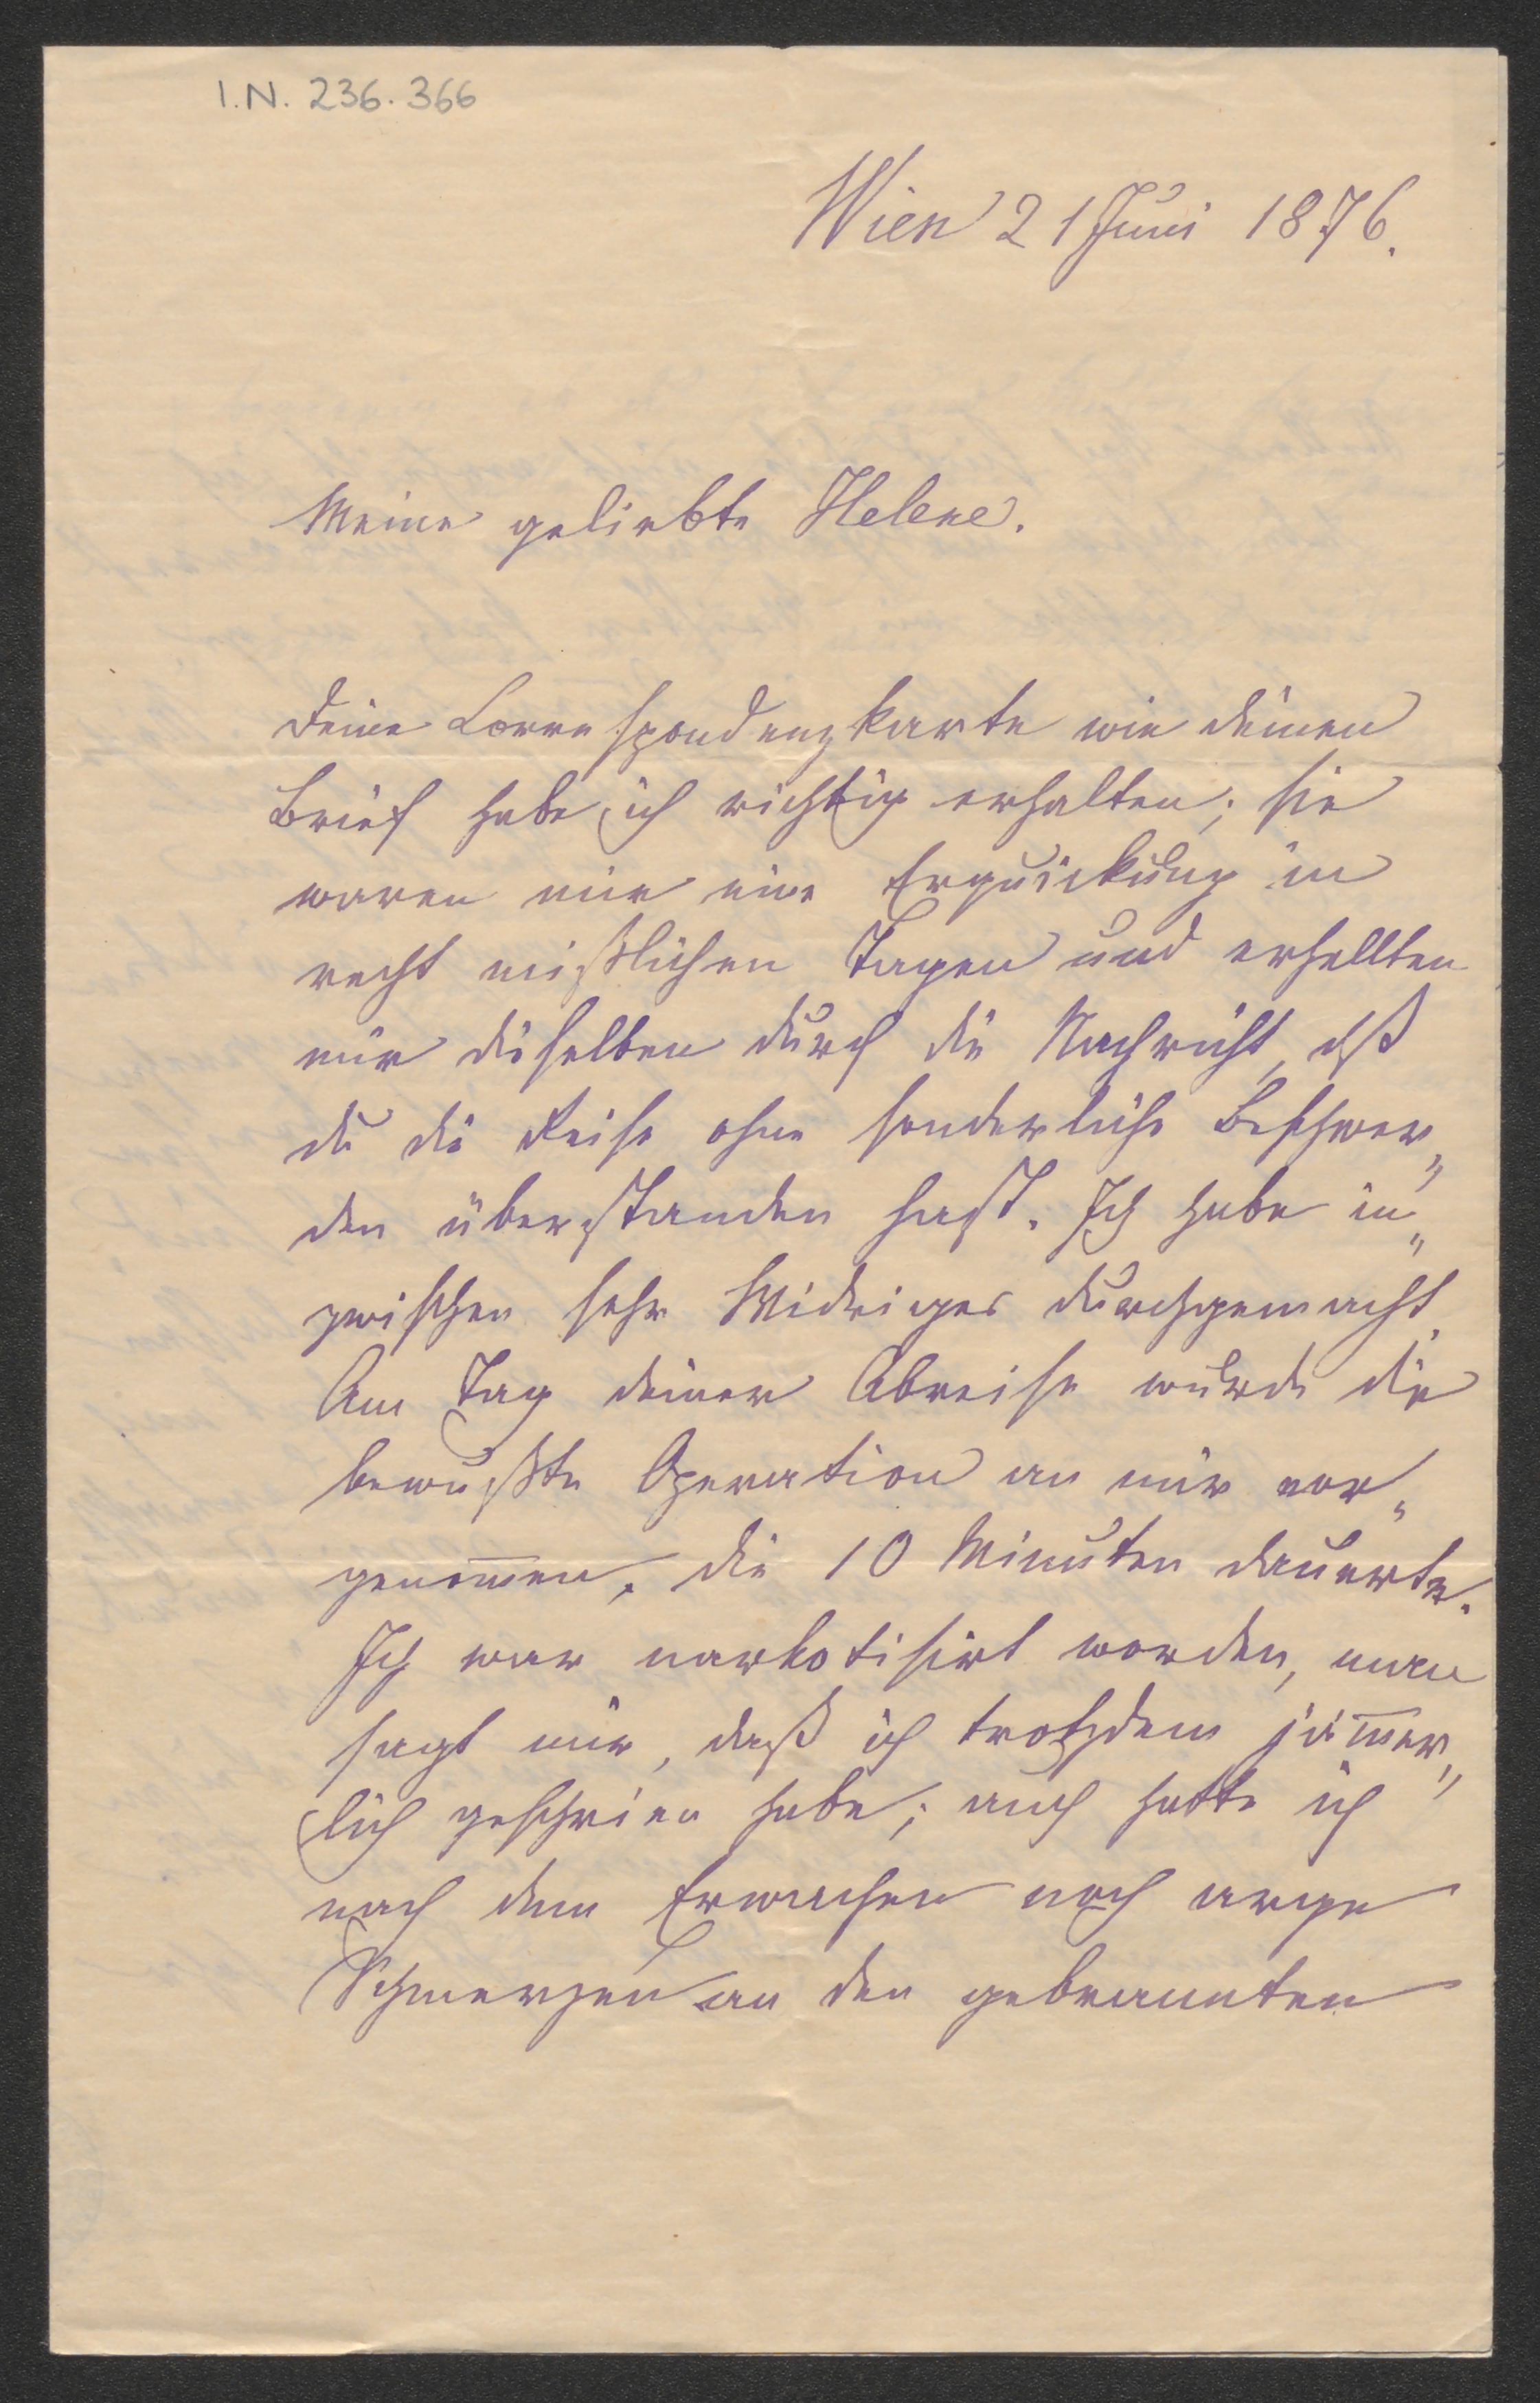 I.N. 236.366
Wien 21 Juni 1876.
Meine geliebte Helene.
Deine Correspondenzkarte wie deinen
Brief habe ich richtig erhalten; sie
waren mir eine Erquickung in
recht mißlichen Tagen und erhellten
mir dieselben durch die Nachricht, dß
du die Reise ohne sonderliche Beschwer„
den überstanden hast. Ich habe in„
zwischen sehr Widriges durchgemacht.
Am Tag deiner Abreise wurde die
bewußte Operation an mir vor„
genom̅en, die 10 Minuten dauerte.
Ich war narkotisirt worden, man
sagt mir, daß ich trotzdem jäm̅er„
lich geschrien habe; auch hatte ich
nach dem Erwachen noch arge
Schmerzen an den gebrannten